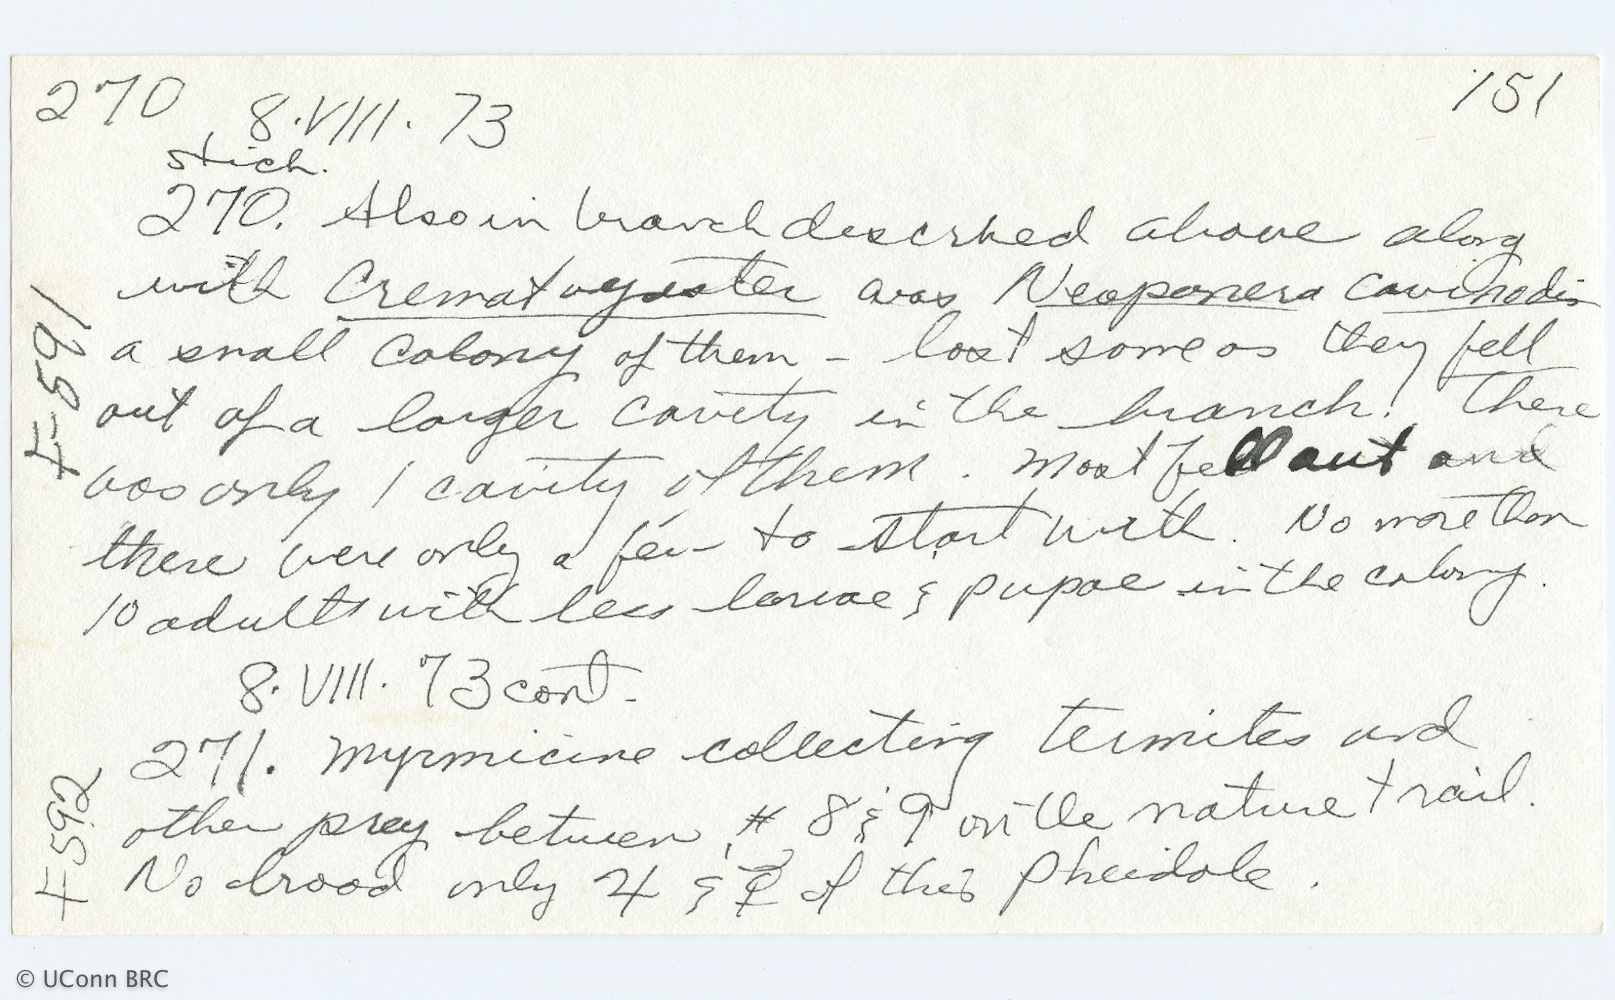 270 8.VIII.73 151
stich.
270. Also in branch described above along
with Crematogaster was Neoponera cavinodis
a small colony of them - lost some as they fell
out of a larger cavity in the branch! There
was only 1 cavity of them. Most fell out and
there were only a few to start with. No more than
10 adults with less larvae & pupae in the colony.
F-591
8.VIII.73 cont.
271. Myrmicine collecting termites and
other prey between # 8 & 9 on the nature trail.
No brood only 4 & of this Pheidole.
F592
© UConn BRC